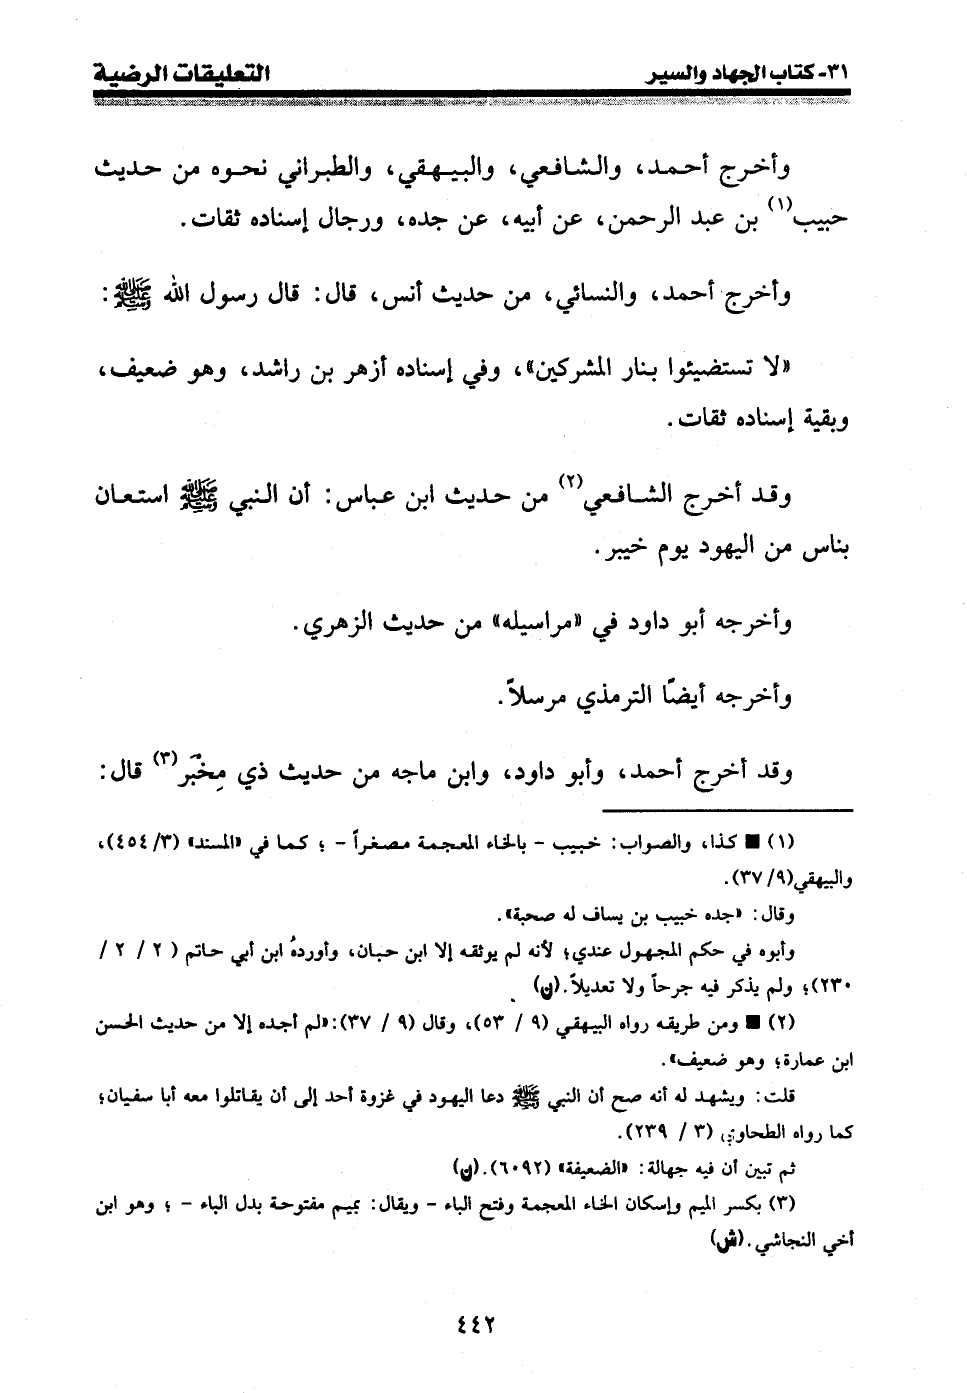 ٣١- كتاب الجهاد والسير
التعليقات الرضية
وأخرج أحمد، والشافعي، والبيهقي، والطبراني نحوه من حديث
حبيب(١) بن عبد الرحمن، عن أبيه، عن جده، ورجال إسناده ثقات.
وأخرج أحمد، والنسائي، من حديث أنس، قال: قال رسول الله ﷺ:
«لا تستضيئوا بنار المشركين»، وفي إسناده أزهر بن راشد، وهو ضعيف،
وبقية إسناده ثقات.
وقد أخرج الشافعي(٢) من حديث ابن عباس: أن النبي ﷺ استعان
بناس من اليهود يوم خيبر.
وأخرجه أبو داود في «مراسيله» من حديث الزهري.
وأخرجه أيضًا الترمذي مرسلاً.
وقد أخرج أحمد، وأبو داود، وابن ماجه من حديث ذي مِخْبَر(٣) قال:
(١) ■ كذا، والصواب: خبيب - بالخاء المعجمة مصغراً - ؛ كما في «المسند» (٣/ ٤٥٤)،
والبيهقي(٩/ ٣٧).
وقال: «جده خبيب بن يساف له صحبة».
وأبوه في حكم المجهول عندي؛ لأنه لم يوثقه إلا ابن حبان، وأوردهُ ابن أبي حاتم ( ٢ / ٢ /
٢٣٠)؛ ولم يذكر فيه جرحاً ولا تعديلاً.(ن)
(٢) ■ ومن طريقه رواه البيهقي (٩ / ٥٣)، وقال (٩ / ٣٧):«لم أجده إلا من حديث الحسن
ابن عمارة؛ وهو ضعيف».
قلت: ويشهد له أنه صح أن النبي ﷺ دعا اليهود في غزوة أحد إلى أن يقاتلوا معه أبا سفيان؛
كما رواه الطحاوي (٣ / ٢٣٩).
ثم تبين أن فيه جهالة: «الضعيفة» (٦٠٩٢).(ن)
(٣) بكسر الميم وإسكان الخاء المعجمة وفتح الباء - ويقال: بميم مفتوحة بدل الباء - ؛ وهو ابن
أخي النجاشي.(ش)
٤٤٢